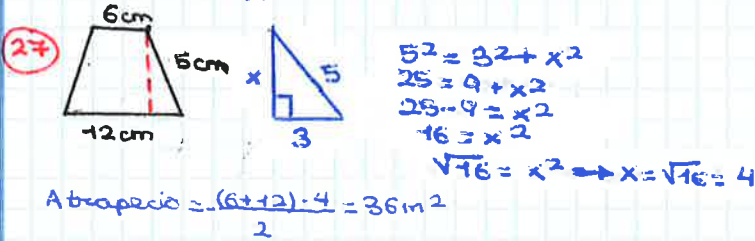 6cm
27
5cm
12cm
x
5
3
5² = 3² + x²
25 = 9 + x²
25 - 9 = x²
16 = x²
√16 = x² → x = √16 = 4
Atrapecio = (6+12)·4 / 2 = 36m²